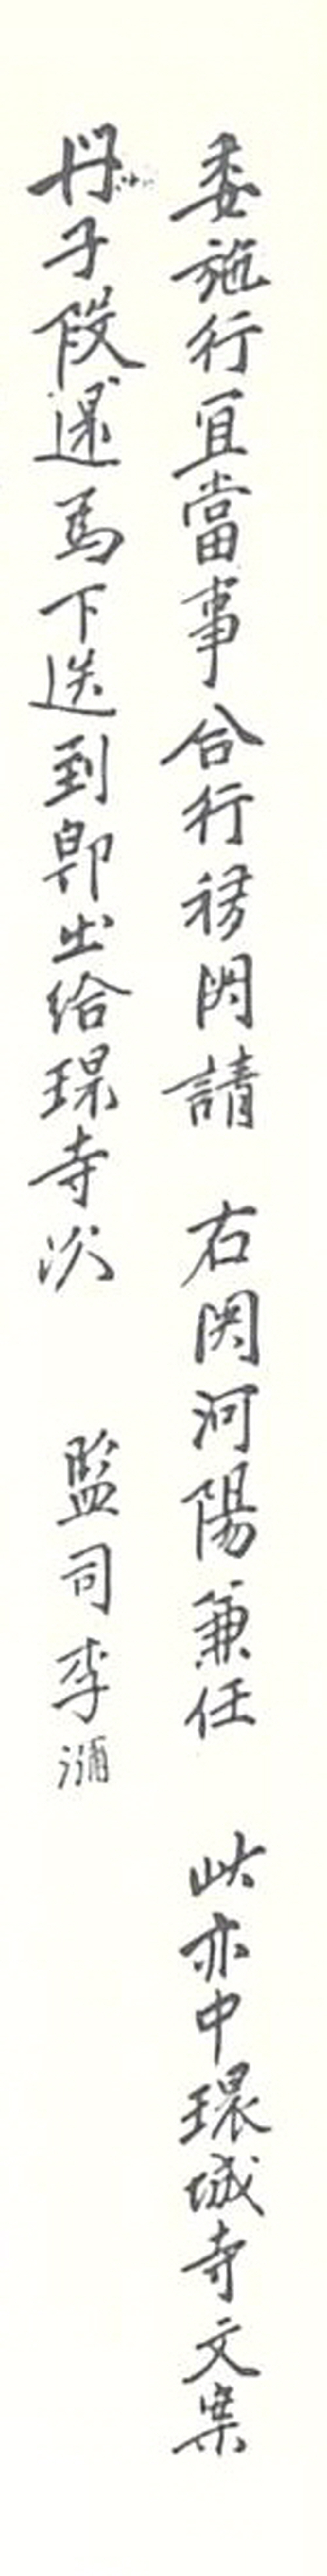 委施行宜當事合行移関請 右関河陽兼任 此亦中環城寺文案
丹子段還馬下送到即出給環寺次 監司李